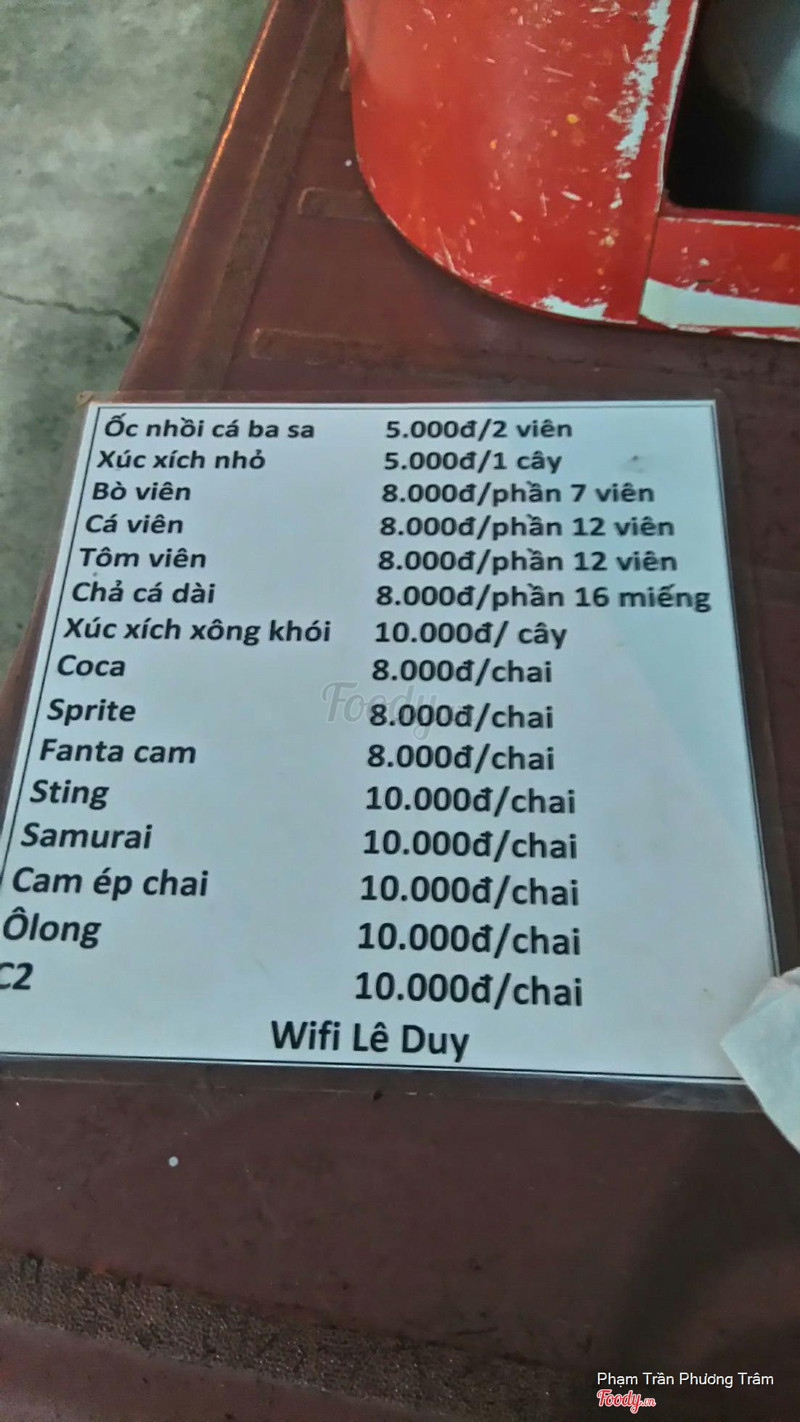 Ốc nhồi cá ba sa 5.000đ/2 viên
Xúc xích nhỏ 5.000đ/1 cây
Bò viên 8.000đ/phần 7 viên
Cá viên 8.000đ/phần 12 viên
Tôm viên 8.000đ/phần 12 viên
Chả cá dài 8.000đ/phần 16 miếng
Xúc xích xông khói 10.000đ/ cây
Coca 8.000đ/chai
Sprite 8.000đ/chai
Fanta cam 8.000đ/chai
Sting 10.000đ/chai
Samurai 10.000đ/chai
Cam ép chai 10.000đ/chai
Ôlong 10.000đ/chai
C2 10.000đ/chai
Wifi Lê Duy
Foody
Phạm Trần Phương Trâm
Foody.vn